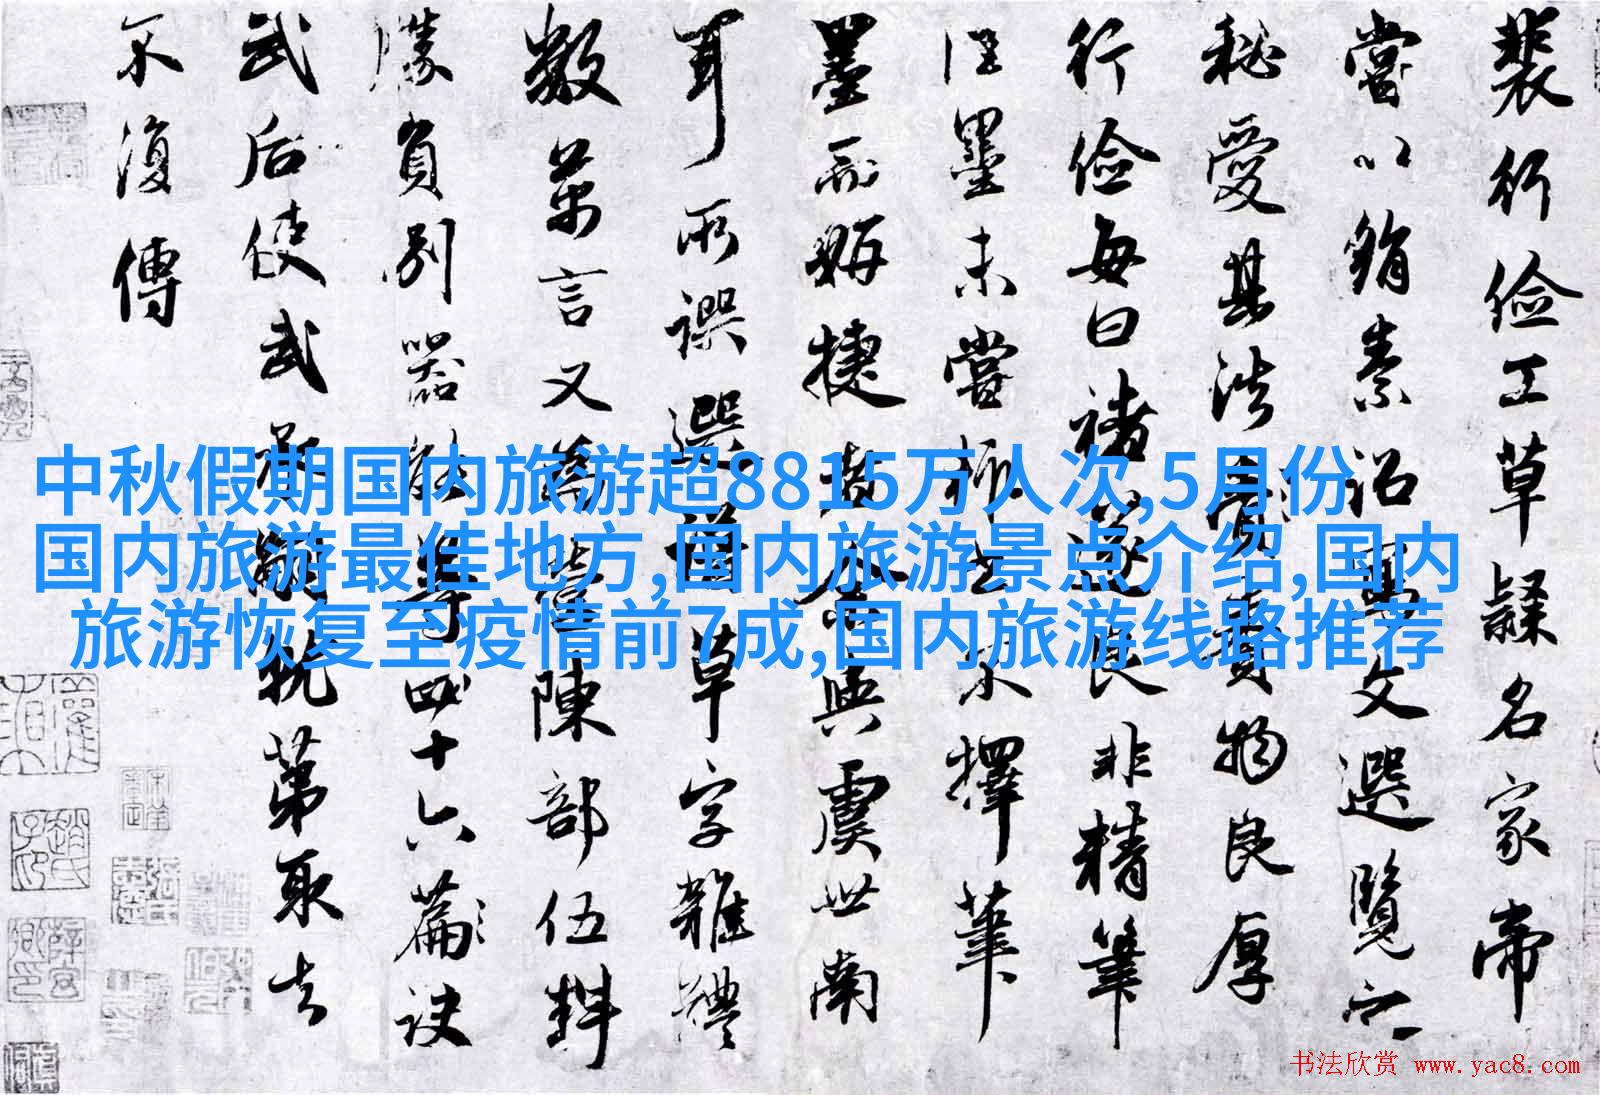 裴行俭工草隸名家帝
嘗以絹素詔寫文選覽之
秘愛其法賞賚物良厚
行俭每曰褚遂良非精筆
佳墨未嘗輒書不擇筆
墨而妍捷者余與虞世南
耳所譔選譜草字雜體
數萬言又為營陳部伍料
勝負別器能等四十六篇訣
武后使武承嗣就第取去
不復傳
中秋假期国内旅游超8815万人次,5月份
国内旅游最佳地方,国内旅游景点介绍,国内
旅游恢复至疫情前7成,国内旅游线路推荐
书法欣赏 www.yac8.com